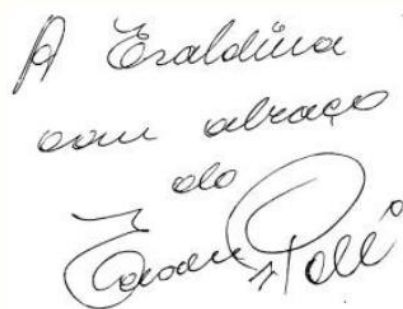 A Eraldina
com abraço
do
Edson Pelé